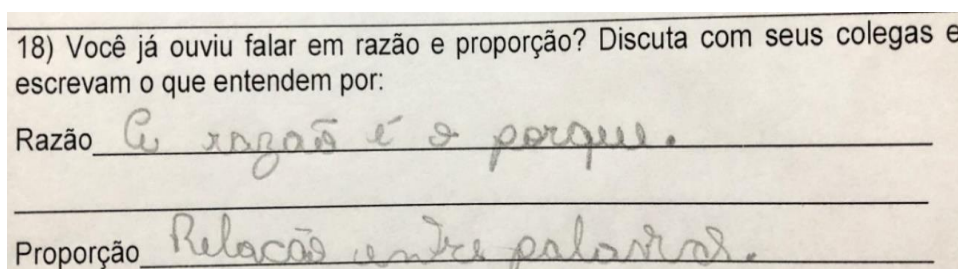 18) Você já ouviu falar em razão e proporção? Discuta com seus colegas e
escrevam o que entendem por:
Razão A razão é o porque.
Proporção Relação entre palavras.